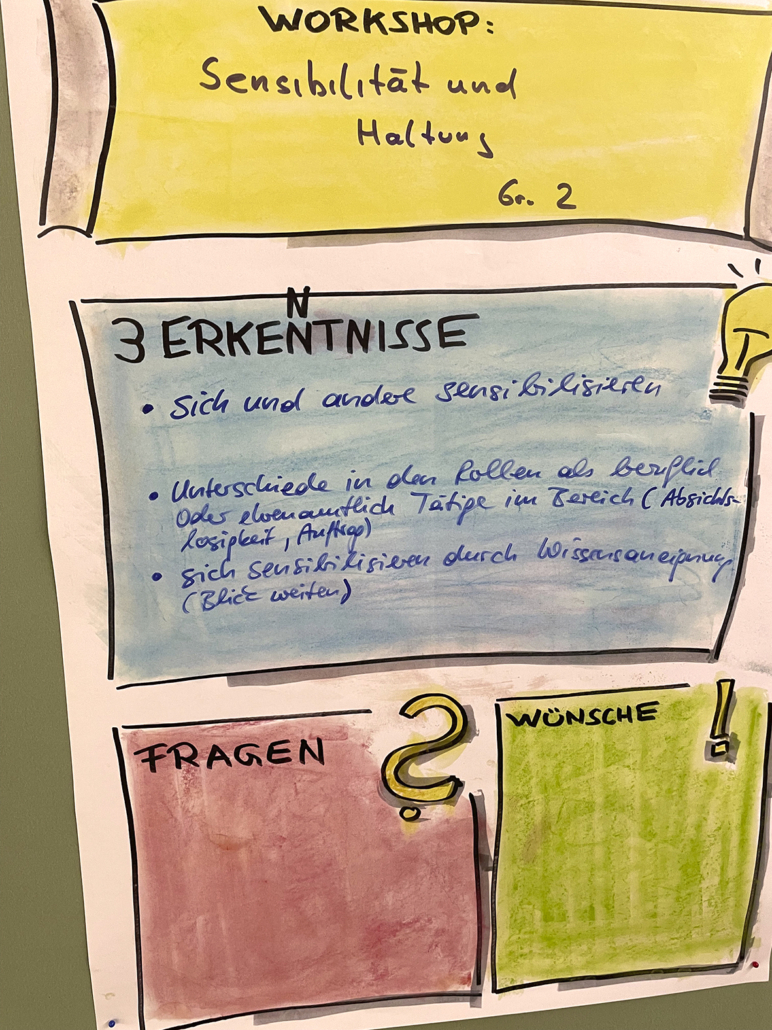 WORKSHOP:
Sensibilität und
Haltung
Gr. 2
3 ERKENNTNISSE
• Sich und andere sensibilisieren
• Unterschiede in den Rollen als beruflich
oder ehrenamtlich Tätige im Bereich (Absichts-
losigkeit, Auftrag)
• sich sensibilisieren durch Wissensaneignung
(Blick weiten)
FRAGEN ?
WÜNSCHE !